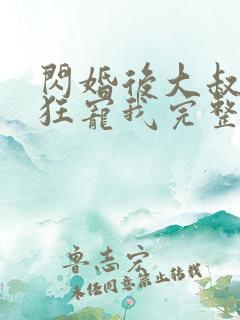 閃婚後大叔
狂寵我完整
鲁志宏
未经同意禁止转载